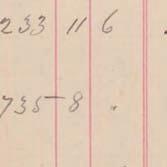 233 11 6
735 8 "